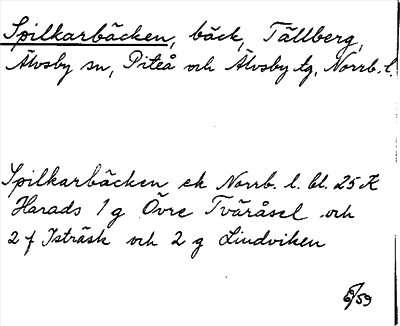 Spilkarbäcken, bäck, Tällberg,
Älvsby sn, Piteå och Älvsby tg, Norrb. l.
Spilkarbäcken ek Norrb. l. bl. 25 K
Harads 1 g Övre Tväråsel och
2 f Isträsk och 2 g Lindviken
6/59